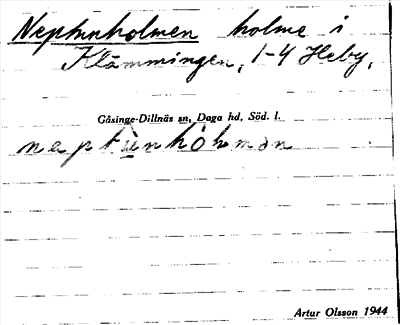 Neptunholmen holme i
Klämmingen, 1-4 Heby,
Gåsinge-Dillnäs sn, Daga hd, Söd. l.
neptùnhòlmən
Artur Olsson 1944